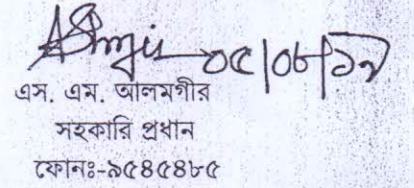 ০৫/০৮/১৭
এস. এম. আলমগীর
সহকারি প্রধান
ফোনঃ-৯৫৪৫৪৮৫